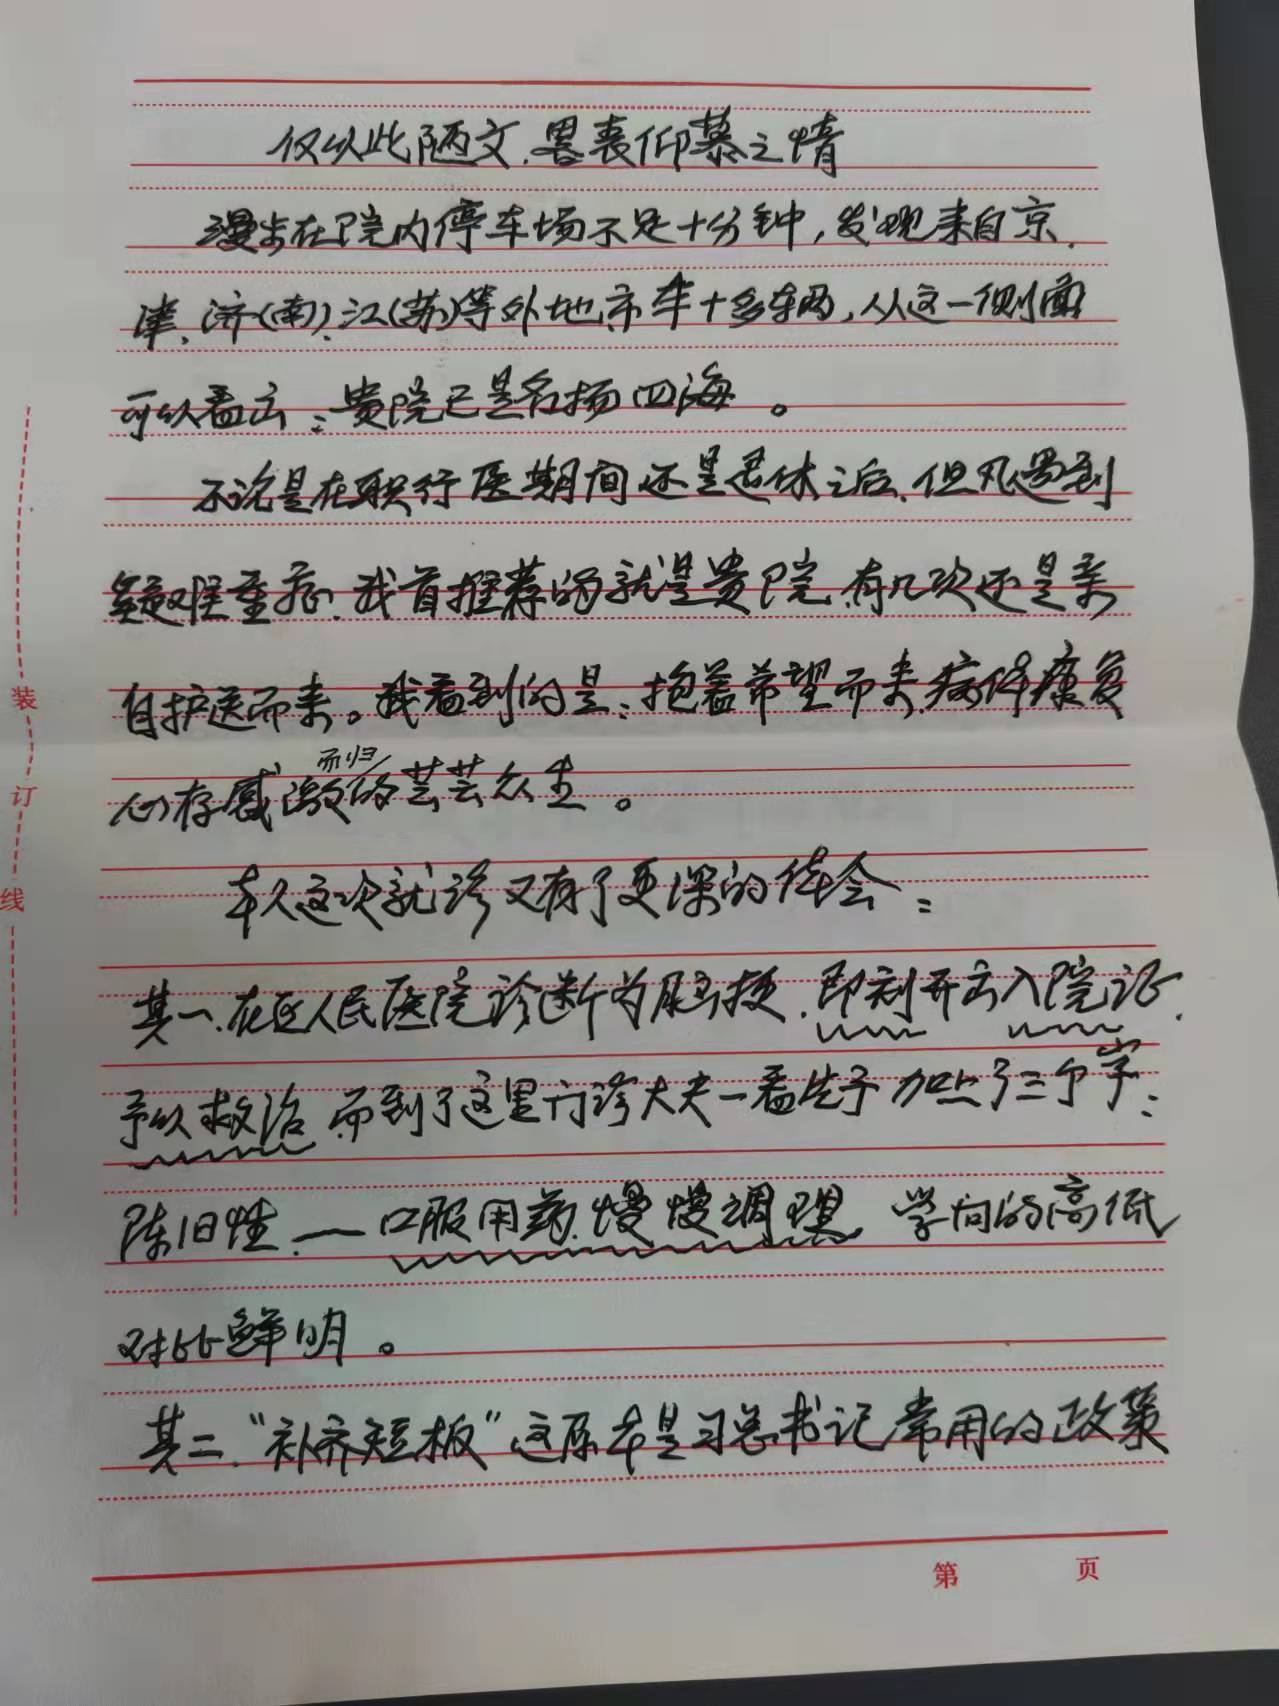 仅以此陋文，略表仰慕之情
漫步在院内停车场不足十分钟，发现来自京、
津、济(南)、江(苏)等外地市车十多辆，从这一侧面
可以看出：贵院已是名扬四海。
不论是在职行医期间还是退休之后，但凡遇到
疑难重症，我首推荐的就是贵院，有几次还是亲
自护送而来。我看到的是：抱着希望而来，病体康复
心存感激而归的芸芸众生。
本人这次就诊又有了更深的体会：
其一、在区人民医院诊断为脑梗，即刻开出入院证，
予以救治，而到了这里门诊大夫一看片子加上了三个字：
陈旧性，—口服用药，慢慢调理，学问的高低
对比鲜明。
其二、“补齐短板”这原本是习总书记常用的政策
装
订
线
第 页